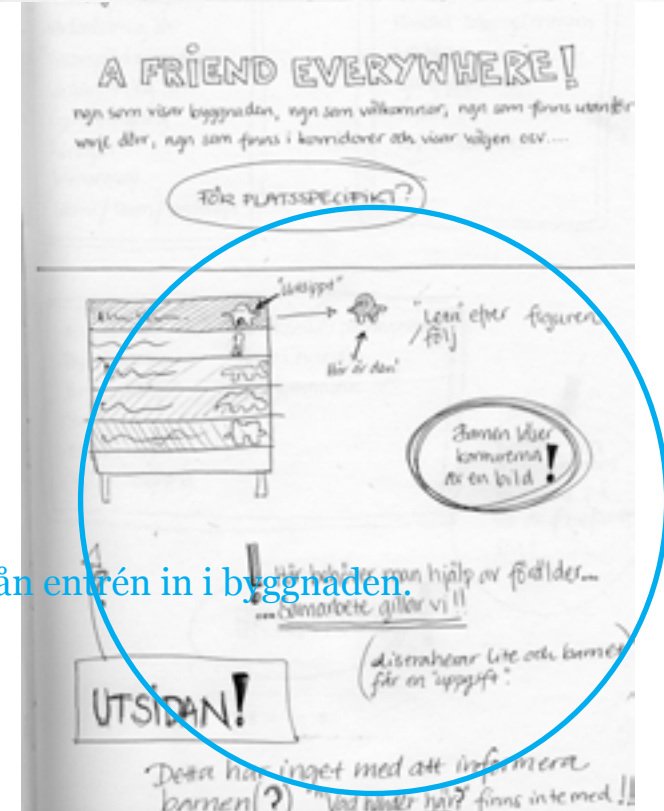 A FRIEND EVERYWHERE!
ngn som visar byggnaden, ngn som välkomnar, ngn som finns utanför
varje dörr, ngn som finns i korridorer och visar vägen osv....
FÖR PLATSSPECIFIKT?
"Utsippt"
"Leta" efter figuren
/följ
Här är den!
konturerna
av en bild !
ån entrén in i byggnaden.
! Här behöver man hjälp av förälder...
...Samarbete gillar vi!!
(distraherar lite och barnet)
får en "uppgift".
UTSIDAN!
Detta har inget med att informera
barnen(?) "Vad händer här?" finns inte med!!